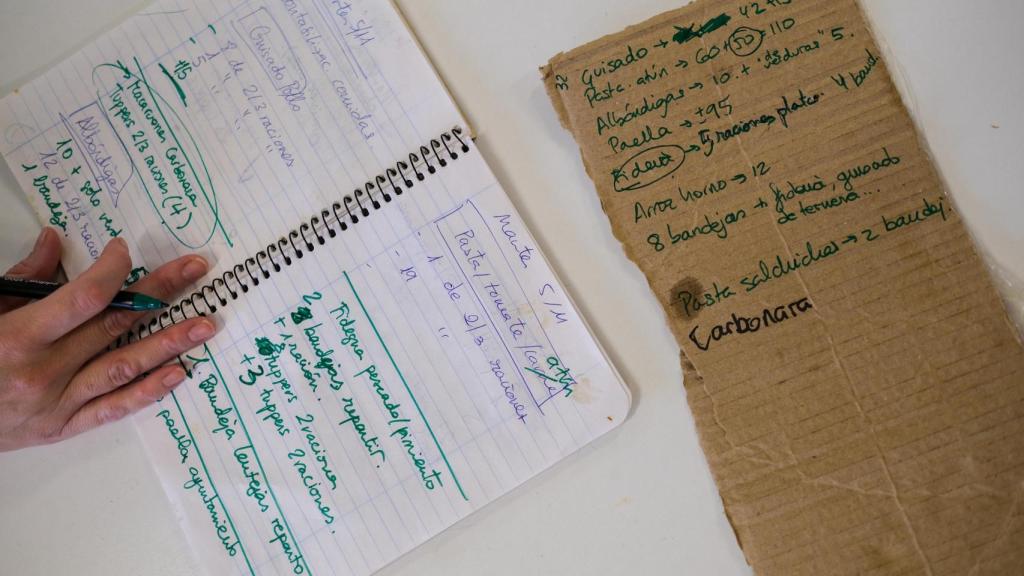 Martes 5/11
Contabilizar comidas
Guisado Pollo
8 de 2/3 raciones
5 " "
Macarrones Carbonara
Tuppers 2/3 raciones (4)
Albóndigas
10 + solo
12 de 2/3
1 bandeja
Martes 5/11
Pasta/tomate/atún
- 1 de 2/3 raciones
- 19 "
Fideuá pescado/pimiento
2 bandejas repartir.
+ 1 ración.
tuppers 2 raciones
+ 3 tuppers 2 raciones.
Bandeja lentejas reparto
paella ayuntamiento
Guisado + 42+
Pasta atún → 60 + 50 = 110
Albóndigas → 10 + "verduras" 5.
Paella → 95
Fideuá → 5 raciones platos. 4 band.
Arroz horno → 12
8 bandejas + fideuá, guisado
de ternera...
Pasta salchichas → 2 bandej.
Carbonara